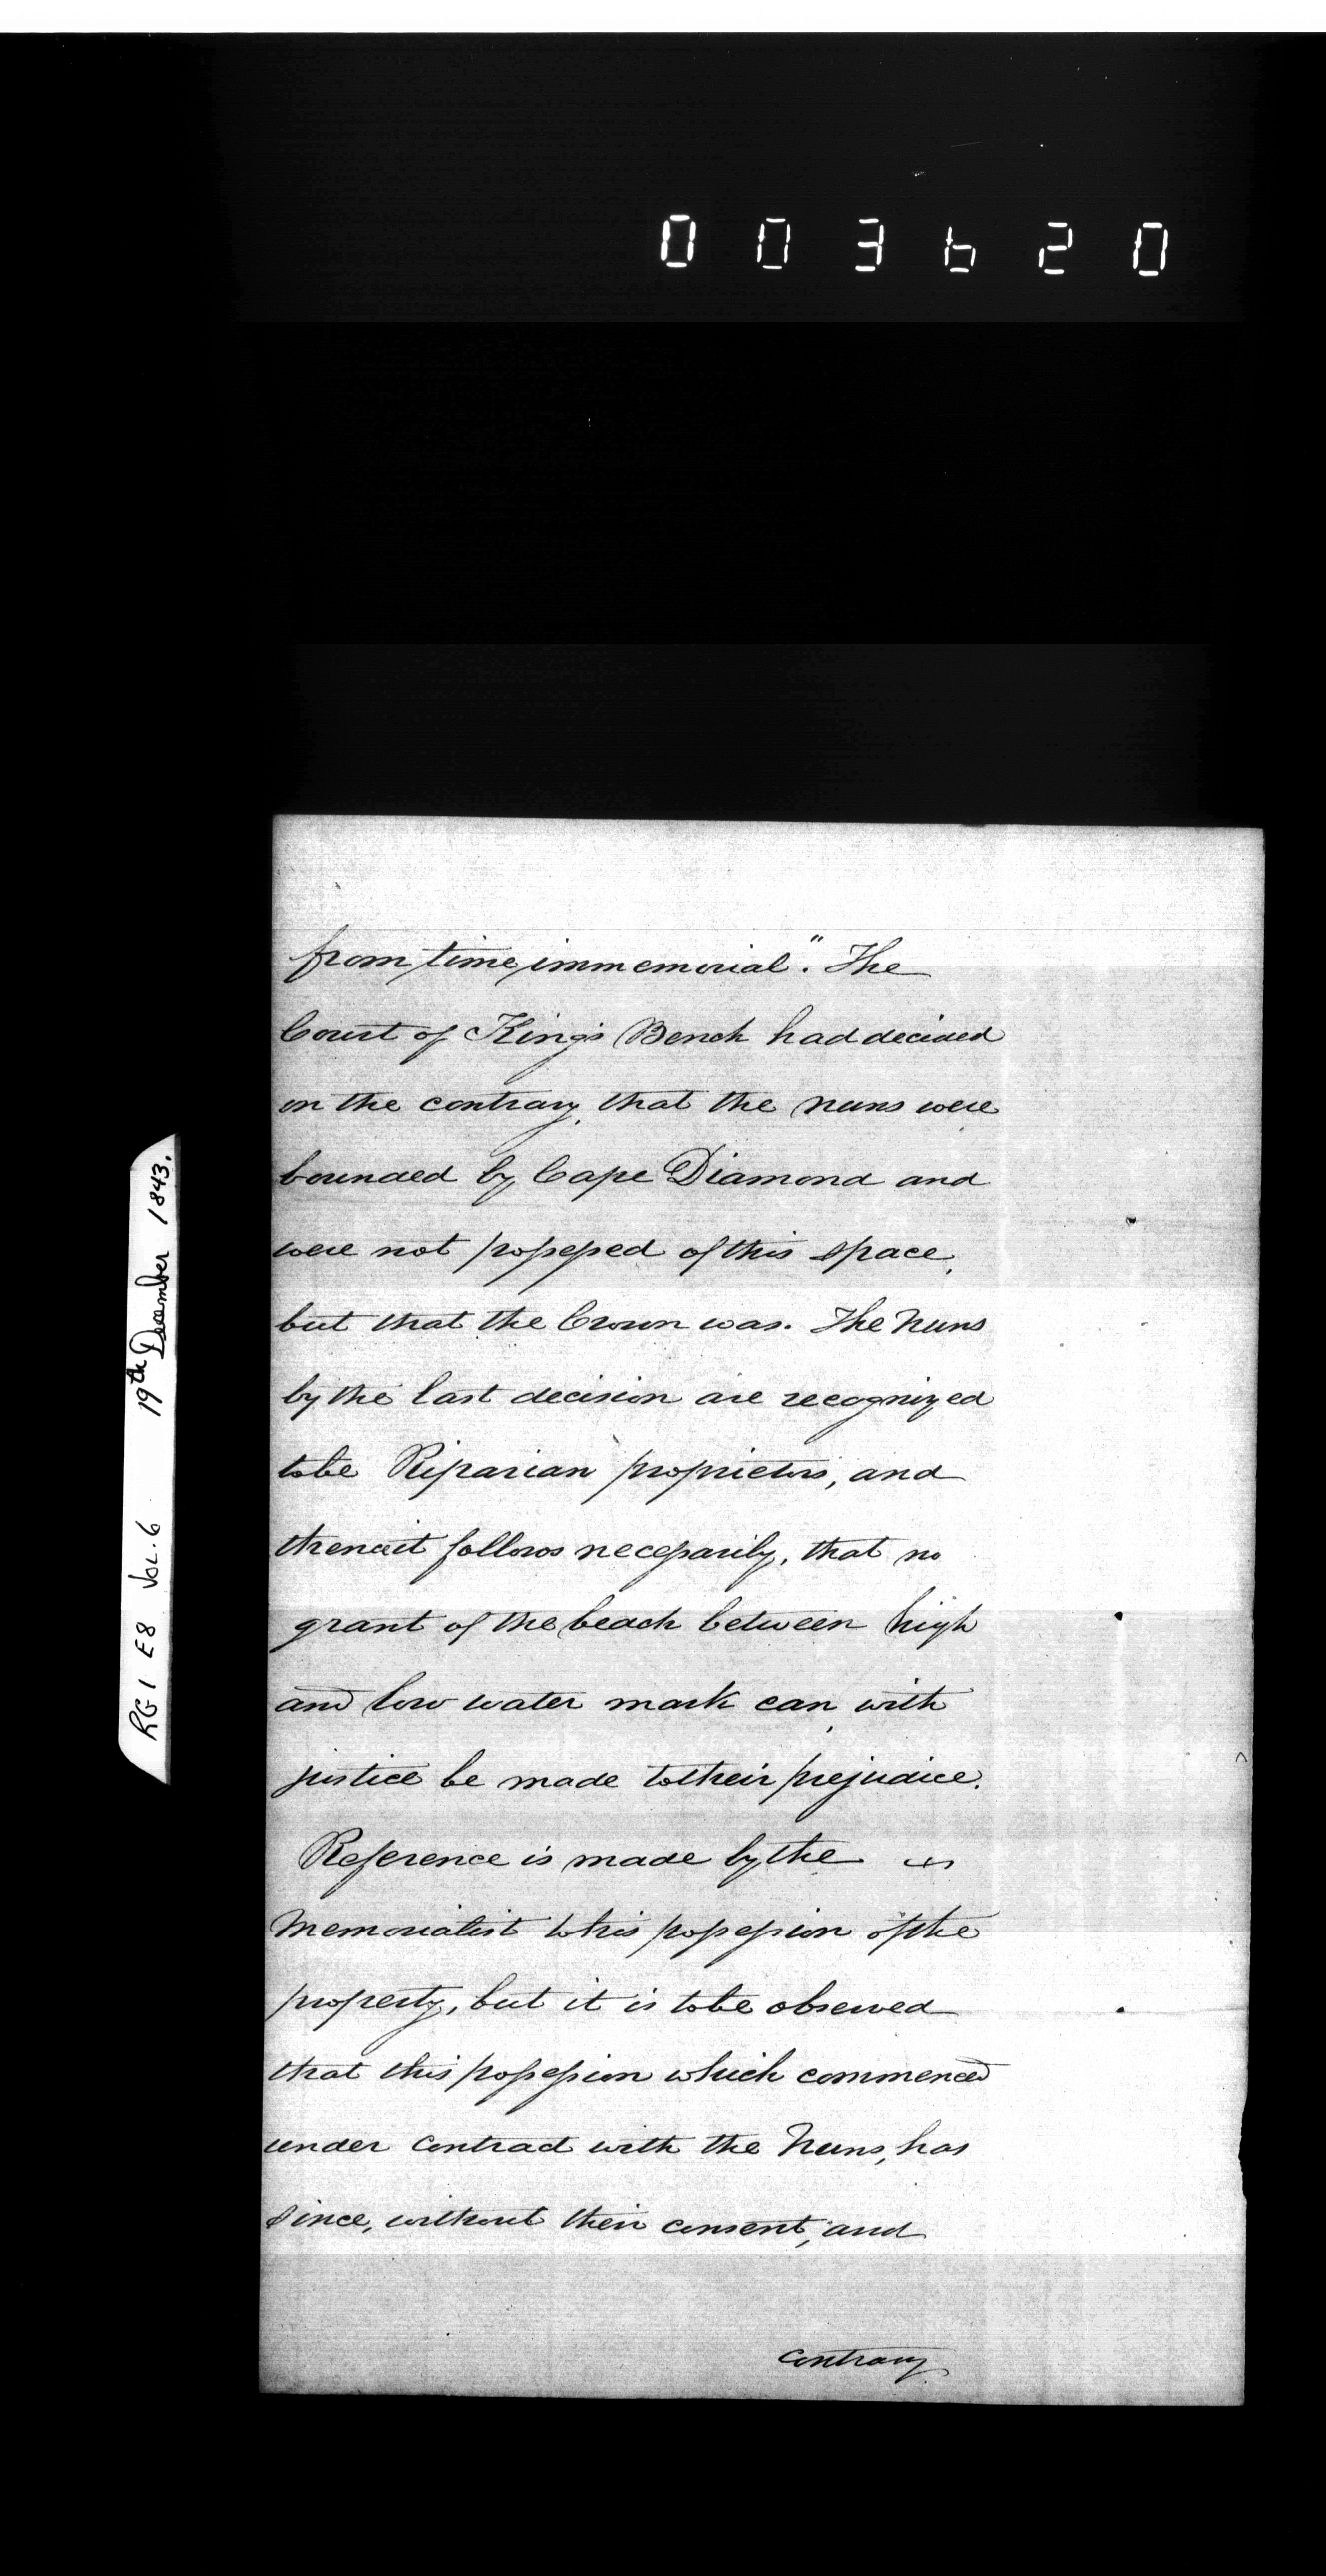 003620
RG1 E8 Vol. 6 19th December 1843.
from time immemorial". The
Court of King's Bench had decided
on the contrary, that the nuns were
bounded by Cape Diamond and
were not possessed of this space,
but that the Crown was. The Nuns
by the last decision are recognized
to be Riparian proprietors, and
then it follows necessarily, that no
grant of the beach between high
and low water mark can with
justice be made to their prejudice.
Reference is made by the
Memorialist to his possession of the
property, but it is to be observed
that this possession which commenced
under contract with the Nuns, has
since, without their consent, and
contrary